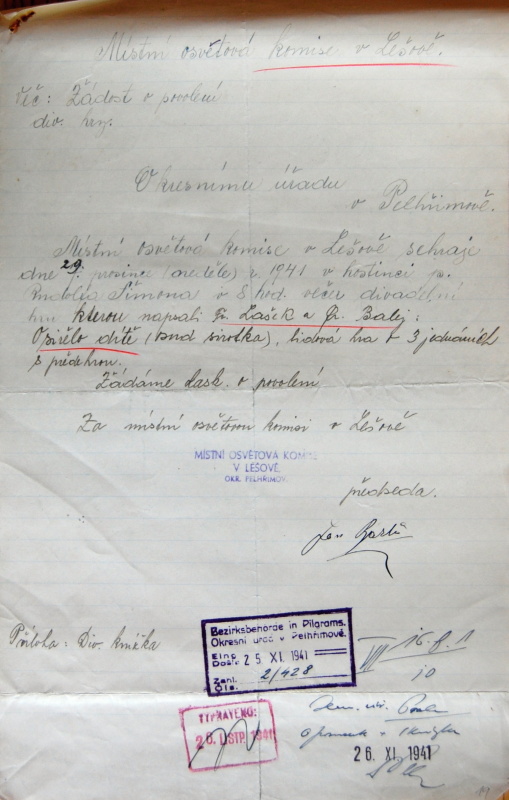 Místní osvětová komise v Lešově.
Věc: Žádost o povolení
div. hry.
Okresnímu úřadu
v Pelhřimově.
Místní osvětová komise v Lešově sehraje
dne 29. prosince (neděle) r. 1941 v hostinci p.
Rudolfa Šimona v 8 hod. večer divadelní
hru kterou napsali Fr. Lašek a Fr. Balej:
Osiřelo dítě (osud sirotka), lidová hra o 3 jednáních
s předehrou.
Žádáme lask. o povolení
Za místní osvětovou komisi v Lešově
MÍSTNÍ OSVĚTOVÁ KOMISE
V LEŠOVĚ,
OKR. PELHŘIMOV.
předseda.
Jan
Příloha: Div. knížka
Bezirksbehörde in Pilgrams.
Okresní úřad v Pelhřimově.
Eing.
Došlo 25. XI. 1941
Zahl.
Čís. 2/428
VYPRAVENO:
26. LISTP. 1941
26. XI. 1941